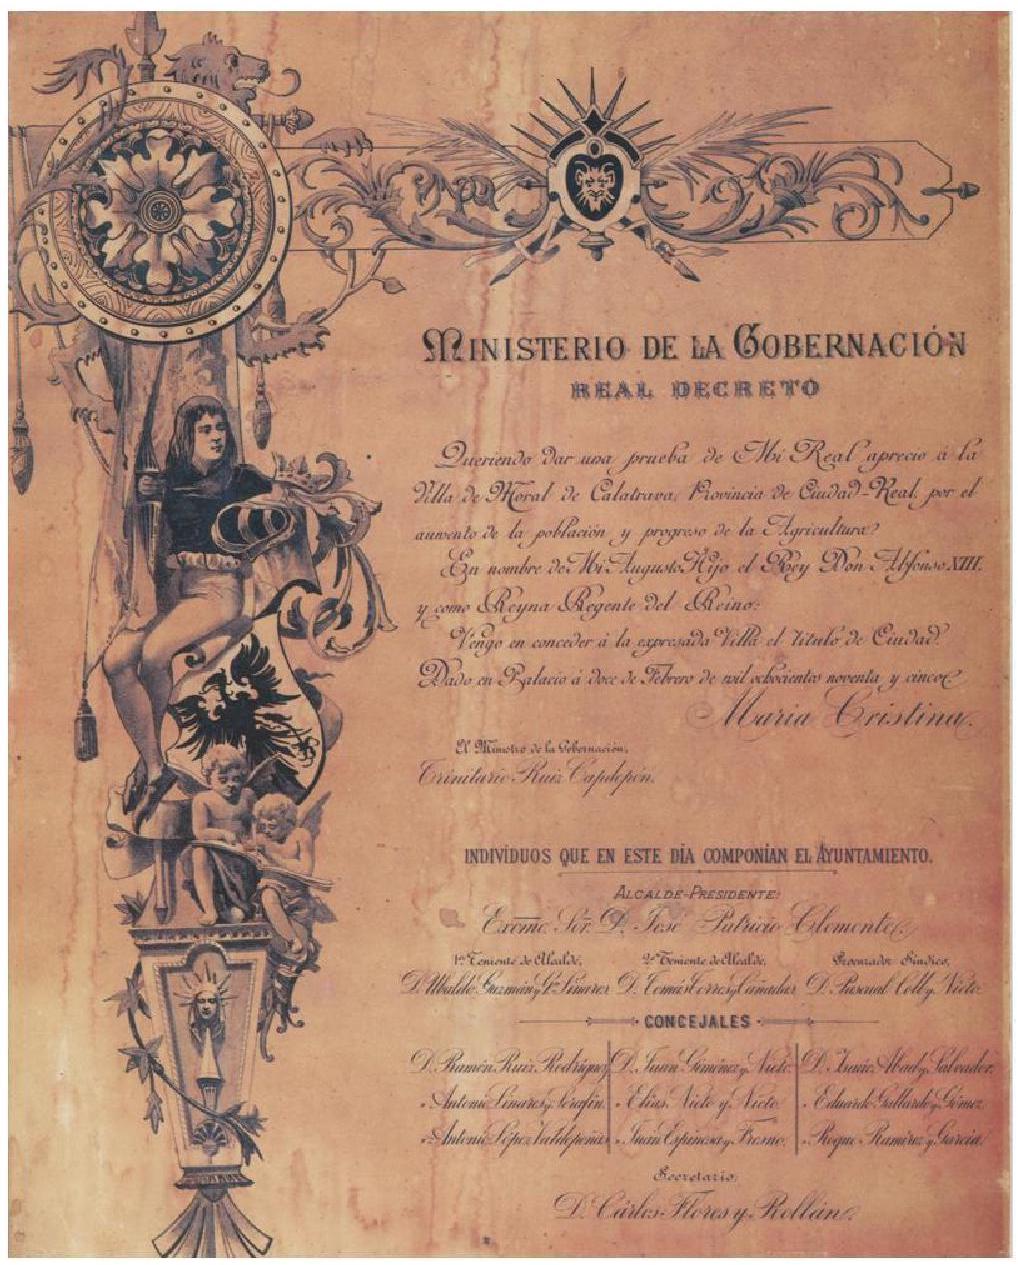 MINISTERIO DE LA GOBERNACIÓN
REAL DECRETO
Queriendo dar una prueba de Mi Real aprecio á la
Villa de Moral de Calatrava, Provincia de Ciudad-Real, por el
aumento de la población y progreso de la Agricultura
En nombre de Mi Augusto Hijo el Rey Don Alfonso XIII,
y como Reyna Regente del Reino:
Vengo en conceder á la expresada Villa el título de Ciudad.
Dado en Palacio á doce de Febrero de mil ochocientos noventa y cinco
María Cristina.
El Ministro de la Gobernación,
Trinitario Ruiz Capdepón.
INDIVIDUOS QUE EN ESTE DÍA COMPONÍAN EL AYUNTAMIENTO.
ALCALDE-PRESIDENTE:
Excmo. Sor. D. José Patricio Clemente
1er Teniente de Alcalde, 2º Teniente de Alcalde, Procurador Síndico,
D. Ubaldo Guzmán y Linares D. Tomás Torres y Cañadas D. Pascual Coll y Nieto
CONCEJALES
D. Ramón Ruiz Rodríguez D. Juan Giménez y Nieto D. Abad y Salvador
" Antonio Linares y Serafín " Elías Nieto y Nieto " Eduardo Gallardo y Gómez
" Antonio López Valdepeñas " Juan Espinosa y Fresno " Roque Ramírez y García
Secretario,
D. Cárlos Flores y Rollán